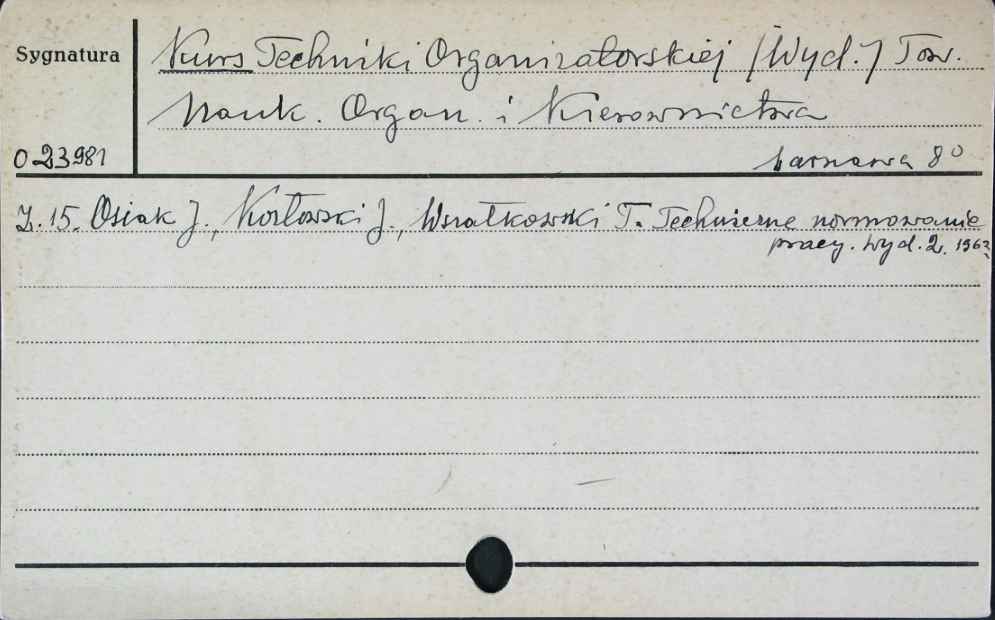 Sygnatura
Kurs Techniki Organizatorskiej /Wyd./ Tow.
Nauk. Organ. i Kierownictwa
O 23981
Warszawa 8°
Z. 15. Osiak J., Kozłowski J., Wsiatkowski T. Techniczne normowanie
pracy. Wyd. 2. 1962